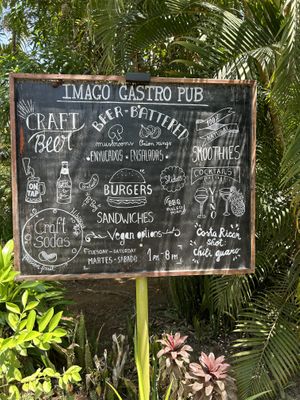 IMAGO GASTRO PUB
CRAFT
Beer
BEER-BATTERED
mushrooms
Onion rings
SMOOTHIES
ON
TAP
BURGERS
COCKTAILS
SANDWICHES
VINO
Craft
Sodas
Vegan options
TUESDAY - SATURDAY
MARTES - SABADO
1pm - 8pm
Costa Rican
Shot
Chili guaro